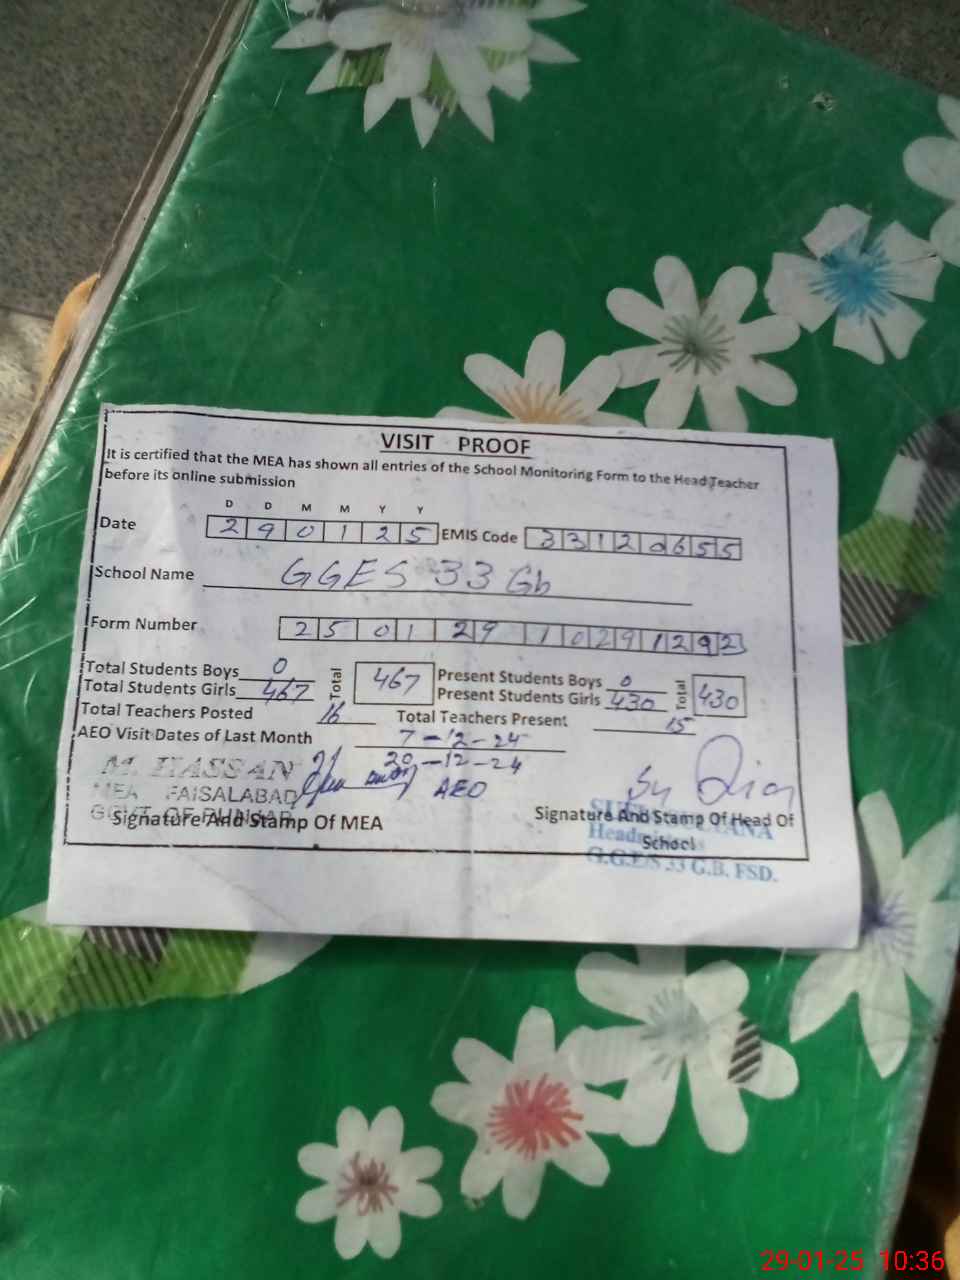 VISIT PROOF
It is certified that the MEA has shown all entries of the School Monitoring Form to the Head Teacher
before its online submission
D D M M Y Y
Date 290125 EMIS Code 33120655
School Name GGES 33 Gb
Form Number 25012910291292
Total Students Boys 0 Total 467 Present Students Boys 0 Total 430
Total Students Girls 467 Present Students Girls 430
Total Teachers Posted 16 Total Teachers Present 15
AEO Visit Dates of Last Month 7-12-24
20-12-24
AEO
M. HASSAN
MEA FAISALABAD
GOVT. OF PUNJAB
Signature And Stamp Of MEA
Signature And Stamp Of Head Of
School
Headmistress
G.G.E/S 33 G.B. FSD.
29-01-25 10:36